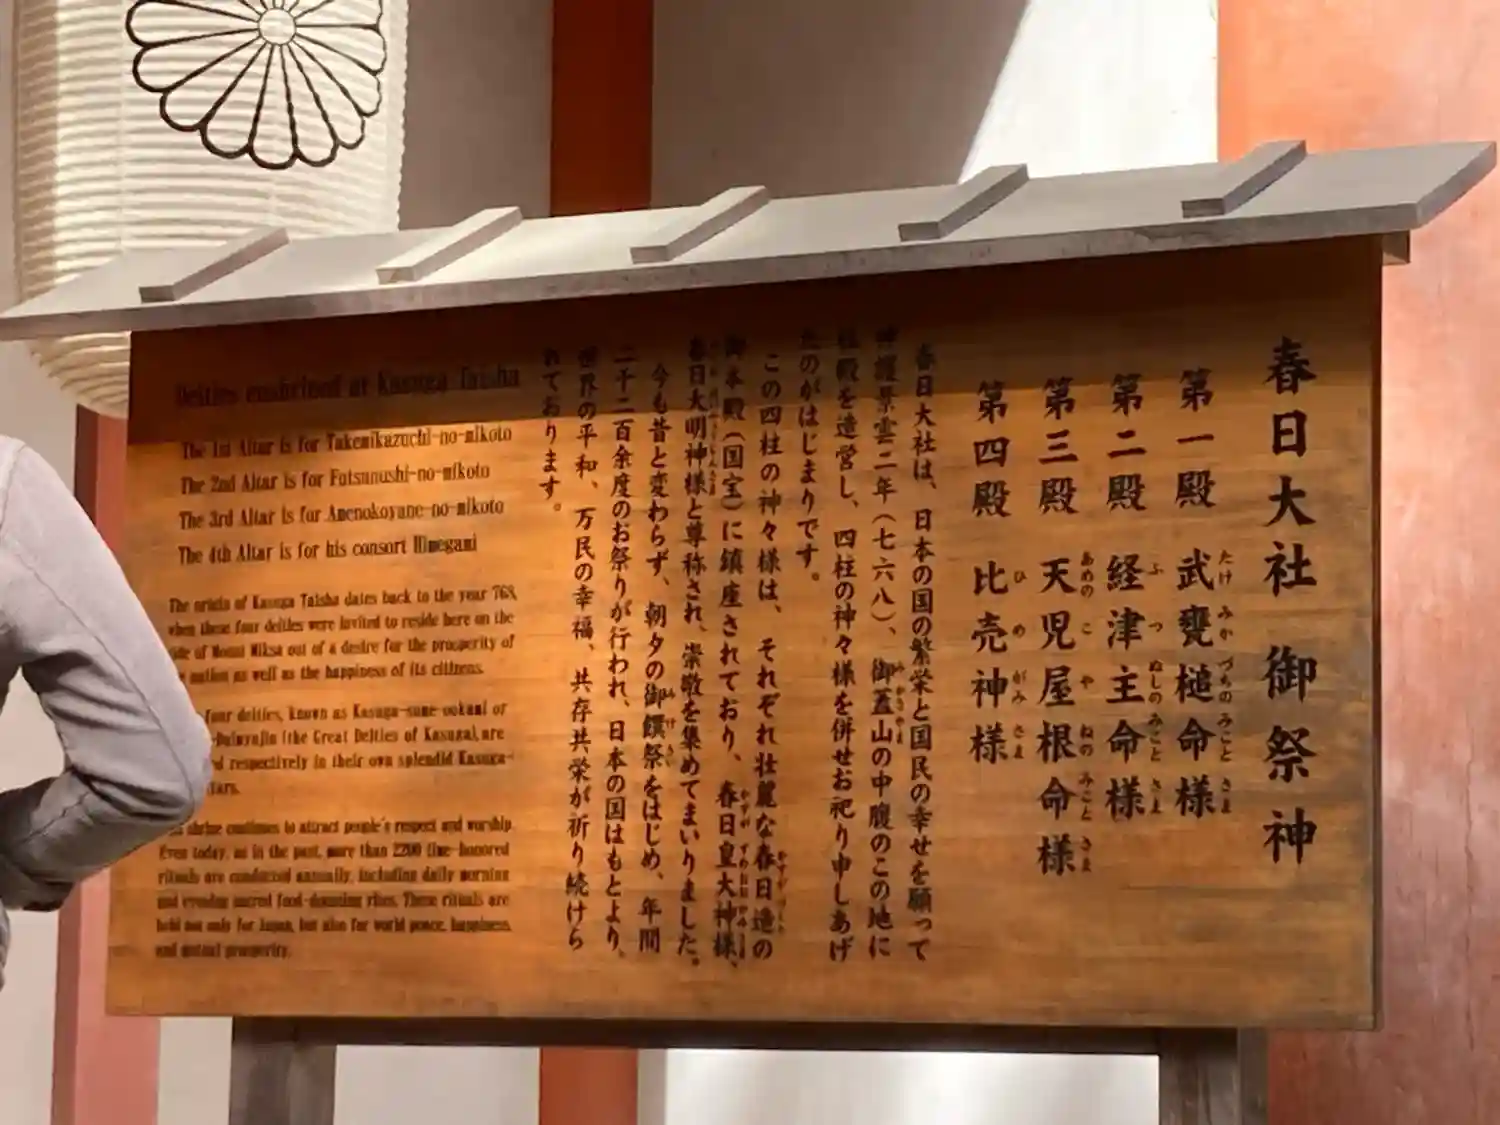 春日大社 御祭神
第一殿 武甕槌命様
たけ みか づちの みこと さま
第二殿 経津主命様
ふ つ ぬしの みこと さま
第三殿 天児屋根命様
あめの こ や ねの みこと さま
第四殿 比売神様
ひ め がみ さま
春日大社は、日本の国の繁栄と国民の幸せを願って
神護景雲二年(七六八)、御蓋山の中腹のこの地に
社殿を造営し、四柱の神々様を併せお祀り申しあげ
たのがはじまりです。
この四柱の神々様は、それぞれ壮麗な春日造の
御本殿(国宝)に鎮座されており、春日皇大神様、
春日大明神様と尊称され、崇敬を集めてまいりました。
今も昔と変わらず、朝夕の御饌祭をはじめ、年間
二千二百余度のお祭りが行われ、日本の国はもとより、
世界の平和、万民の幸福、共存共栄が祈り続けら
れております。
Deities enshrined at Kasuga Taisha
The 1st Altar is for Takemikazuchi-no-mikoto
The 2nd Altar is for Futsunushi-no-mikoto
The 3rd Altar is for Amenokoyane-no-mikoto
The 4th Altar is for his consort Himegami
The origin of Kasuga Taisha dates back to the year 768,
when these four deities were invited to reside here on the
side of Mount Mikasa out of a desire for the prosperity of
nation as well as the happiness of its citizens.
four deities, known as Kasuga-sume-ookami or
-Daimyojin (the Great Deities of Kasuga), are
respectively in their own splendid Kasuga-
shrine continues to attract people's respect and worship.
Even today, as in the past, more than 2200 time-honored
rituals are conducted annually, including daily morning
and evening sacred food-donating rites. These rituals are
held not only for Japan, but also for world peace, happiness,
and mutual prosperity.